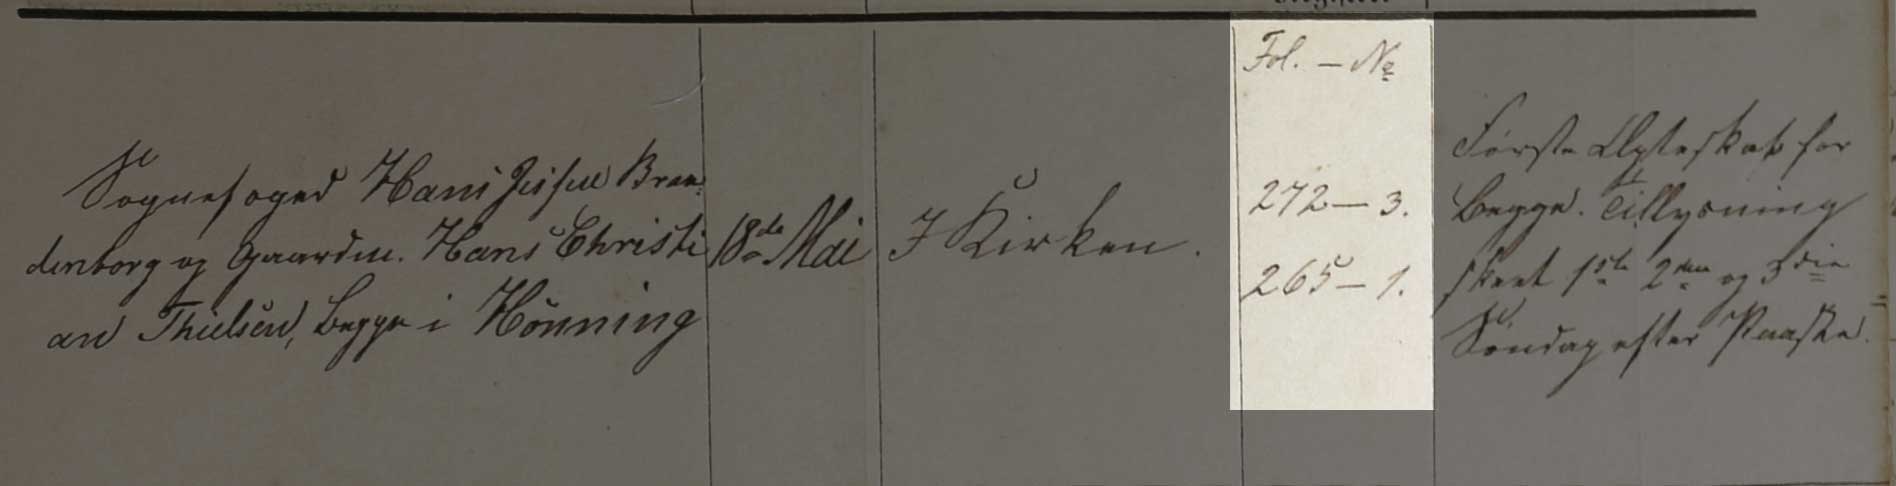 Sognefoged Hans Jessen Bran
denborg og Gaardm. Hans Christi
an Thielsen, begge i Hönning
18de Mai
I Kirken.
Fol. — No
272 — 3.
265 — 1.
Første Ægteskab for
Begge. Tillysning
skeet 1ste 2den og 3die
Søndag efter Paaske.